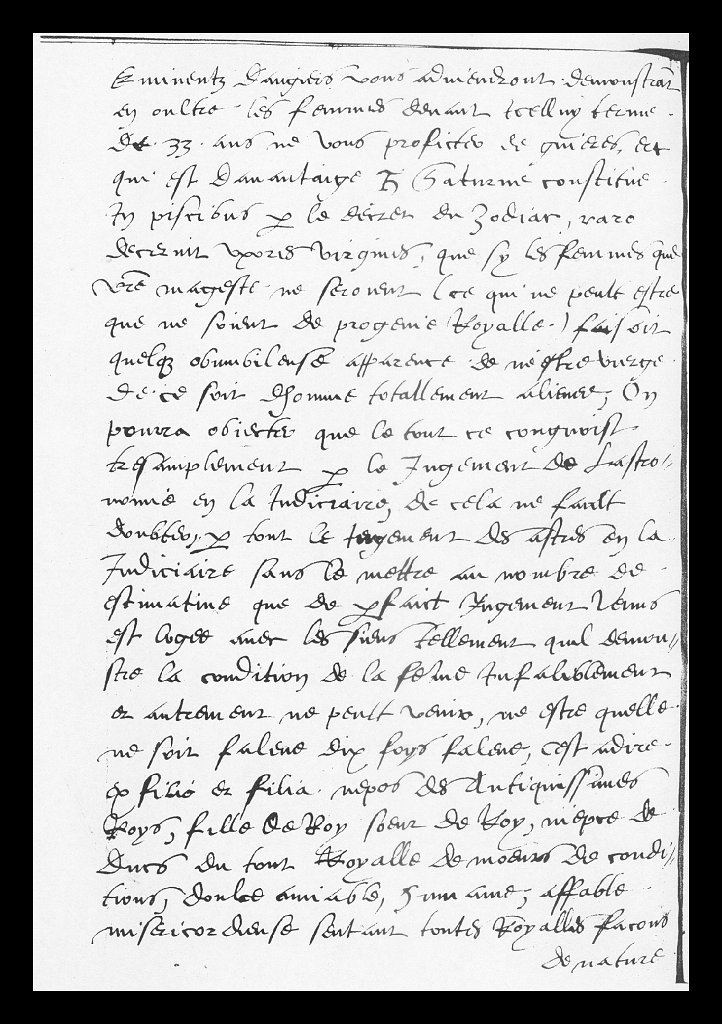 Eminentz dangiers vous adviendront demonstrāt
en oultre les femmes devant icelluy terme
De 33 ans ne vous proficter de guieres, et
qui est davantaige ♄ Saturne constitue
In piscibus p le decret du Zodiac, raro
decernit uxores virgines, que sy les femmes que
vre mageste ne seroient (ce qui ne peult estre
que ne soient de progenie Royalle) faisoit
quelq obnubileuse apparence de nestre vierge
De ce soit dhomme totallement alienee, On
pourra obiecter que le tout ce congnoist
tresamplement p le Jugement de Lastro-
nomie en la Judiciaire, de cela ne fault
doubter, p tout le jugement des astres en la
Judiciaire sans le mettre au nombre de
estimative que de pfaict Jugement Venus
est logee avec les siens Tellement quil demon-
stre la condition de la feme Infaliblement
et autrement ne peult venir, ne estre quelle
ne soit falene dix foys falene, cest adire
ex filio et filia nepos des Antiquissimes
Roys, fille de Roy soeur de Roy, niepce de
Ducs du tout Royalle de moeurs de condi-
tions, doulce amiable, humaine, affable
misericordieuse sentant toutes Royalles facons
de nature